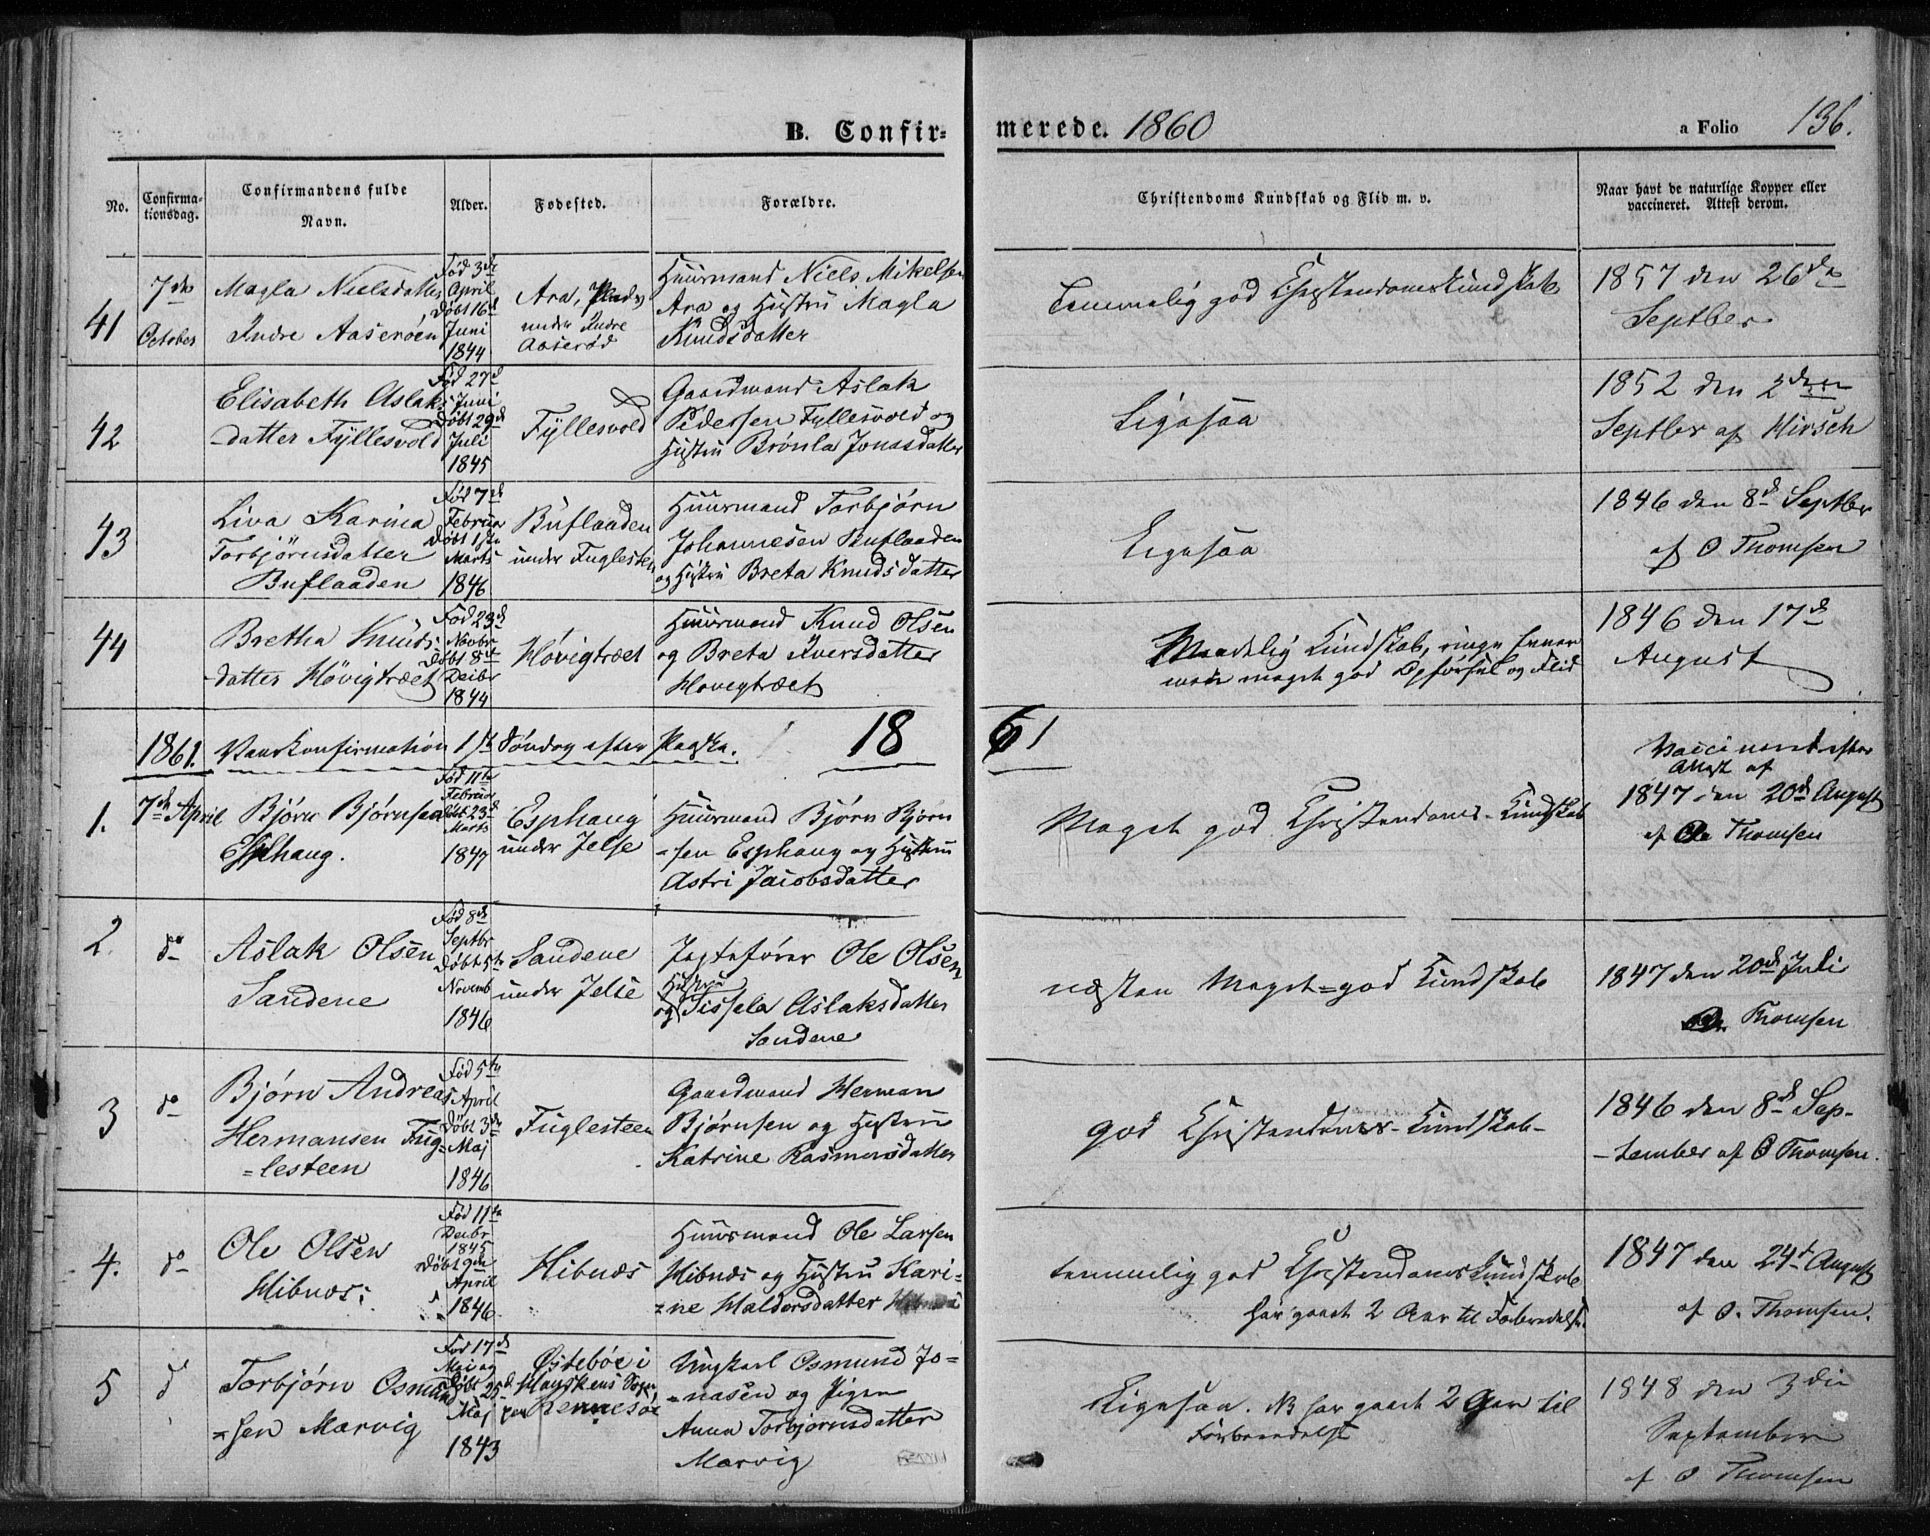 B. Confir=
merede. 1860
a Folio 136.
No.
Confirma-
tionsdag.
Confirmandens fulde
Navn.
Alder.
Fødested.
Forældre.
Christendoms Kundskab og Flid m. v.
Naar havt de naturlige Kopper eller
vaccineret. Attest derom.
41
7de
October
Magla Nielsdatter
Indre Aaserøen
Fød 3de
April
Døbt 16d
Juni
1844
Ara, Plads
under Indre
Aaserød
Huusmand Niels Mikelsen
Ara og Hustru Magla
Knudsdatter
temmelig god Christendomskundskab
1857 den 26de
Septber
42
Elisabeth Aslak
-datter Fyllesvold
Fød 27d
Juni
Døbt 29d
Juli
1845
Fyllesvold
Gaardmand Aslak
Pedersen Fyllesvold og
Hustru Brønla Jonasdatter
Ligesaa
1852 den 2den
Septber af Hirsch
43
Liva Karina
Torbjörnsdatter
Buflaaden
Fød 7d
Februar
Døbt 1ste
Marts
1846
Buflaaden
under Fuglesten
Huusmand Torbjørn
Johannesen Buflaaden
og Hustru Breta Knudsdatter
Ligesaa
1846 den 8d Septber
af O Thomsen
44
Bretha Knuds
datter Høvigtræet
Fød 23d
Novbr
Døbt 8de
Decbr
1844
Høvigtræet
Huusmand Knud Olsen
og Breta Iversdatter
Høvegtræet
Maadelig Kundskab, ringe Evner
men meget god Opførsel og Flid
1846 den 17d
August
1861. Vaarkonfirmation 1ste Søndag efter Paaske.
18
61
1.
7de April
Bjørn Bjørnsen
Esphaug.
Fød 11te
Februar
Døbt 23d
Marts
1847
Esphaug
under Jelse
Huusmand Bjørn Bjørn
=sen Esphaug og Hustru
Astri Jacobsdatter
Meget god Christendoms-Kundskab
Vaccineret efter
Attest af
1847 den 20d August
af Ole Thomsen
2.
do
Aslak Olsen
Sandene
Fød 8d
Septbr
Døbt 5te
Novemb
1846
Sandene
under Jelse
Jagtefører Ole Olsen
Hustru
og Sissela Aslaksdatter
Sandene
næsten Meget=god Kundskab
1847 den 20d Juli
Thomsen
3
do
Bjørn Andreas
Hermansen Fug
=lesteen
Fød 5te
April
Døbt 3de
Maj
1846
Fuglesteen
Gaardmand Herman
Bjørnsen og Hustru
Katrine Rasmusdatter
god Christendoms-Kundskab-
1846 den 8d Sep-
-tember af O Thomsen.
4.
do
Ole Olsen
Hibnæs.
Fød 11te
Decbr
1845
Døbt 9de
April
1846
Hibnæs
Huusmand Ole Larsen
Hibnæs og Hustru Kari=
=ne Haldorsdatter Hibnæs
temmelig god Christendomskundskab
har gaaet 2 Aar til Forberedelse.
1847 den 24d August
af O. Thomsen.
5
do
Torbjørn Osmun
=sen Marvig
Fød 17d
Mai og
Døbt 25d
Maj
1843
Østebøe i
Rennesøe
Ungkarl Osmund Jo=
=nasen og Pigen
Anna Torbjørnsdatter
Marvig
Ligesaa. NB har gaaet 2 Aar til
Forberedelse
1848 den 3die
September
af O Thomsen